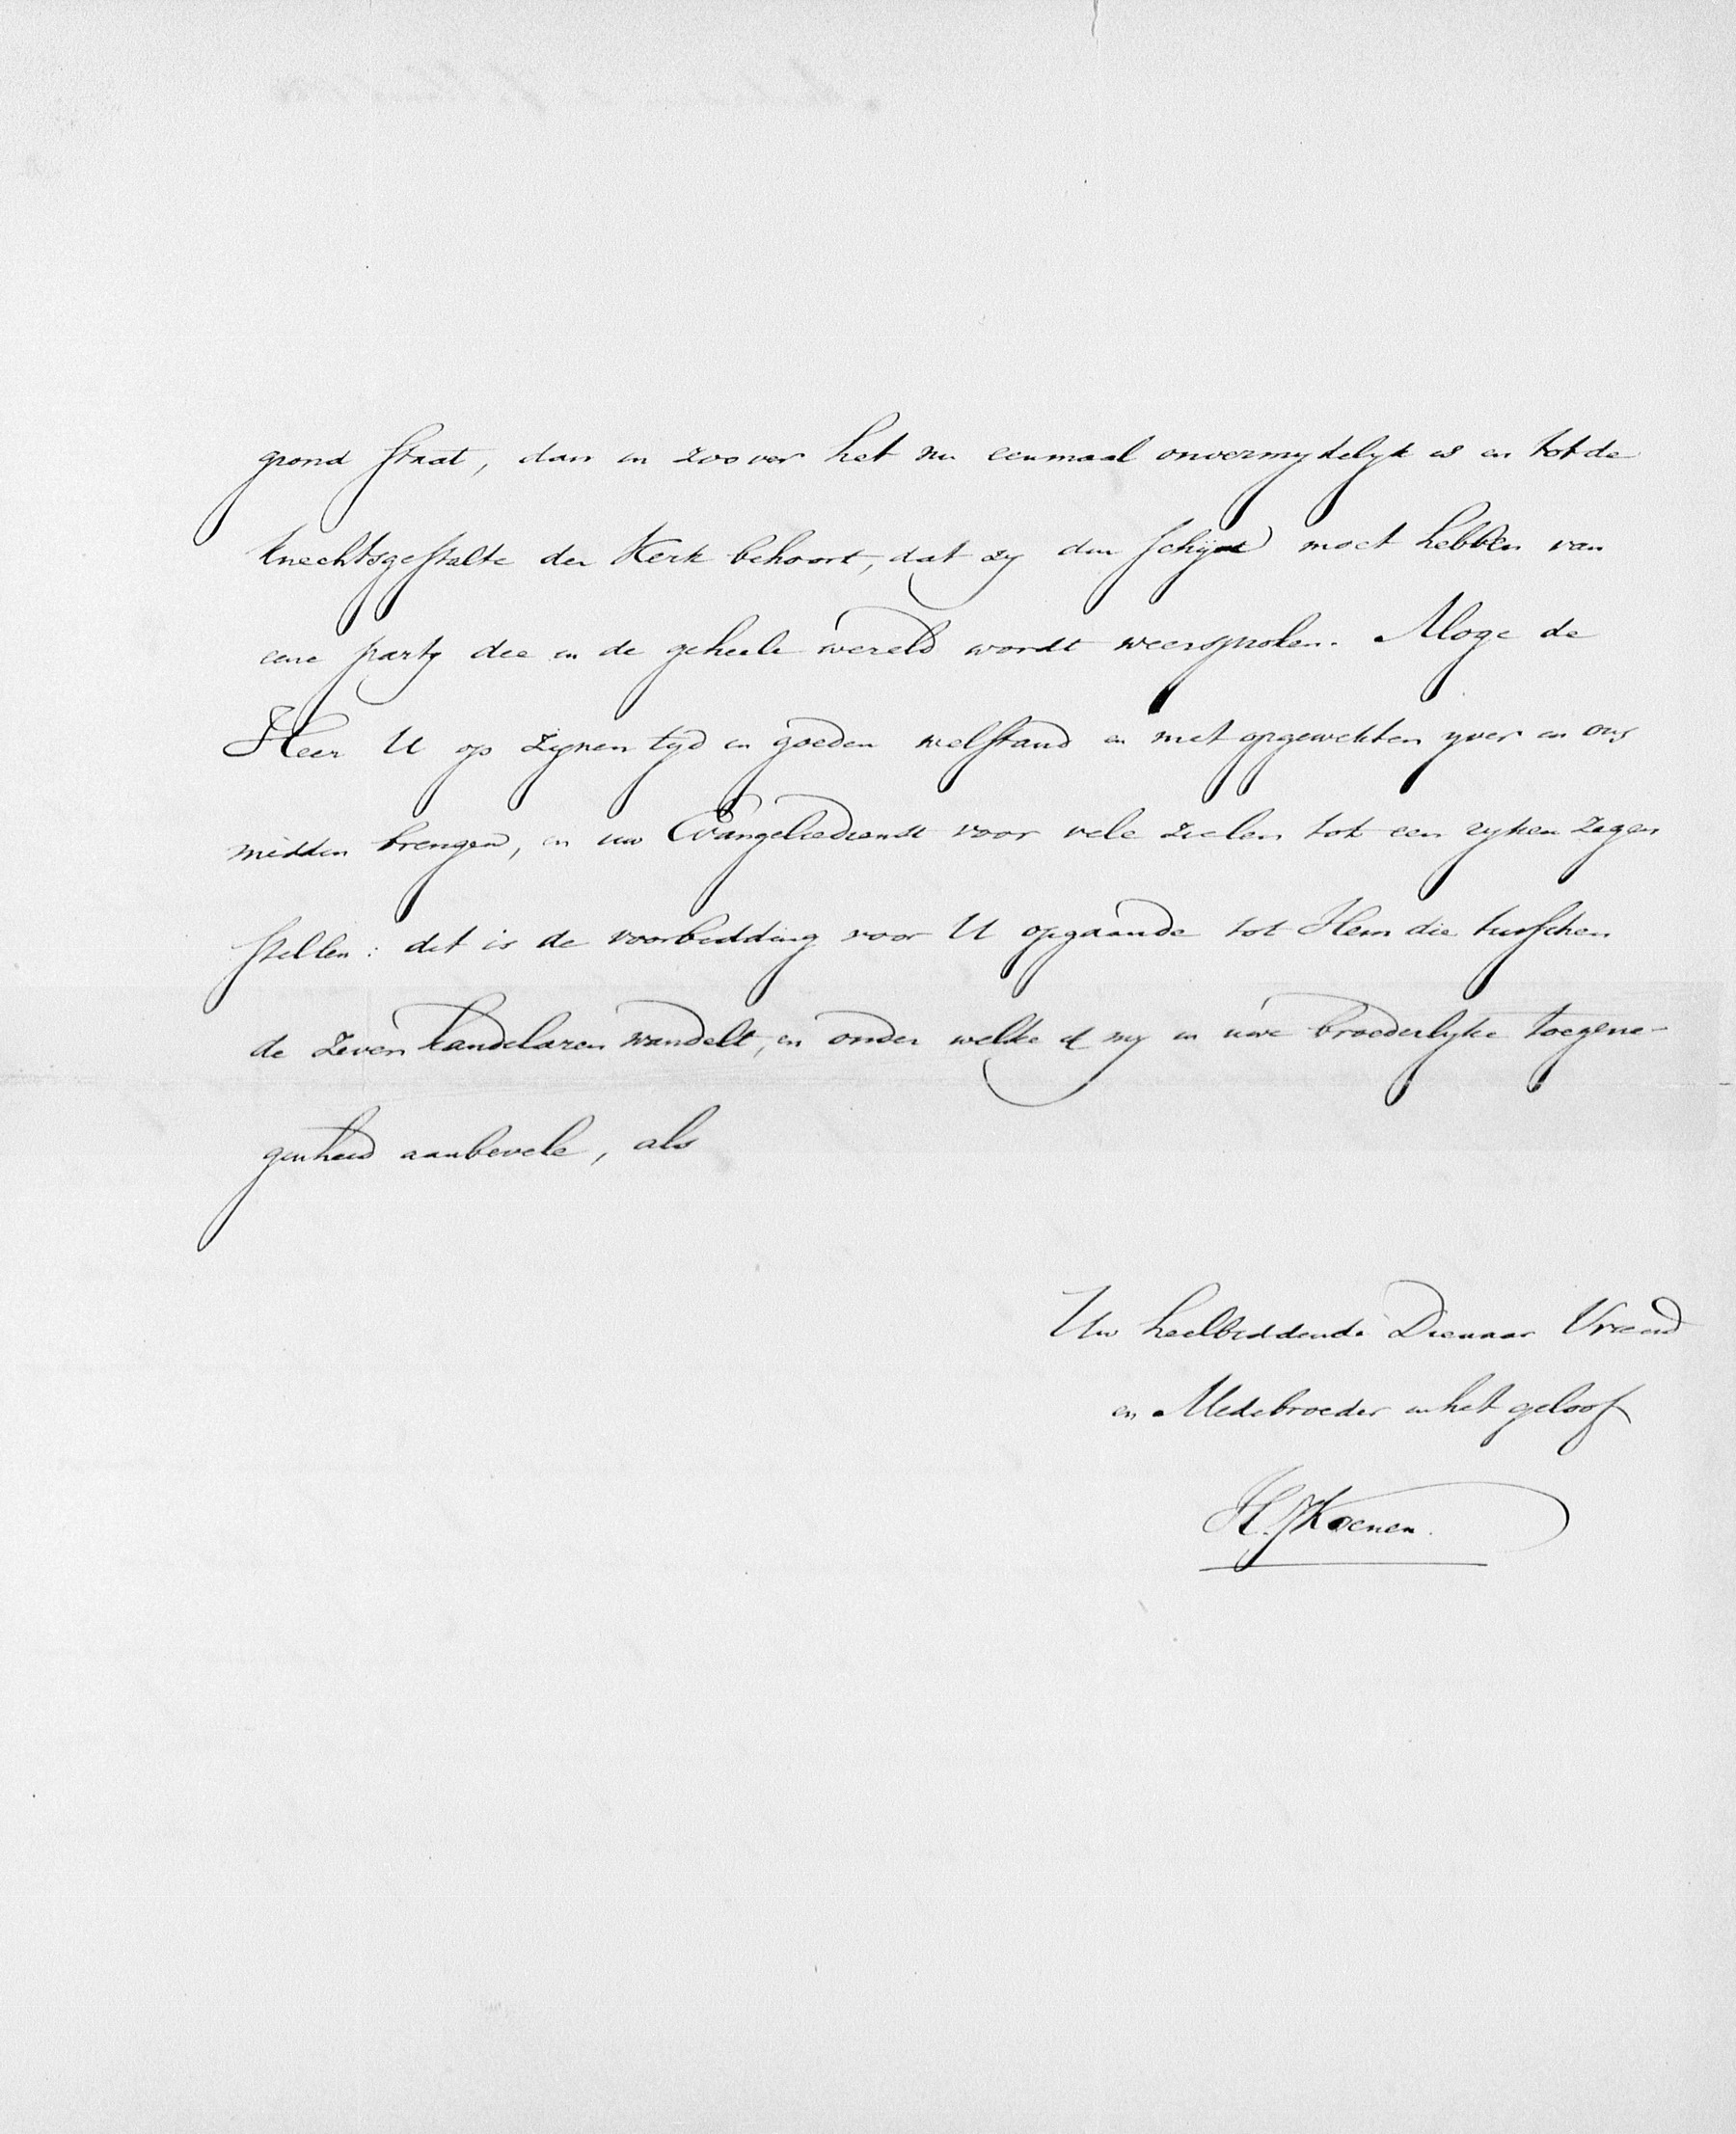 grond staat, dan in zoover het nu eenmaal onvermydelyk is en tot de
knechtsgestalte der Kerk behoort, dat zy den schijn moet hebben van
eene party die in de geheele wereld wordt weersproken. Moge de
Heer U op zynen tyd in goeden welstand en met opgewekten yver in ons
midden brengen, en uw Evangeliedienst voor vele zielen tot een ryken zegen
stellen: dit is de voorbidding voor U opgaande tot Hem die tusschen
de zeven kandelaren wandelt, en onder welke ik my in uwe broederlyke toegene-
genheid aanbevele, als
Uw heilbiddende Dienaar Vriend
en Medebroeder in het geloof
H. J. Koenen.